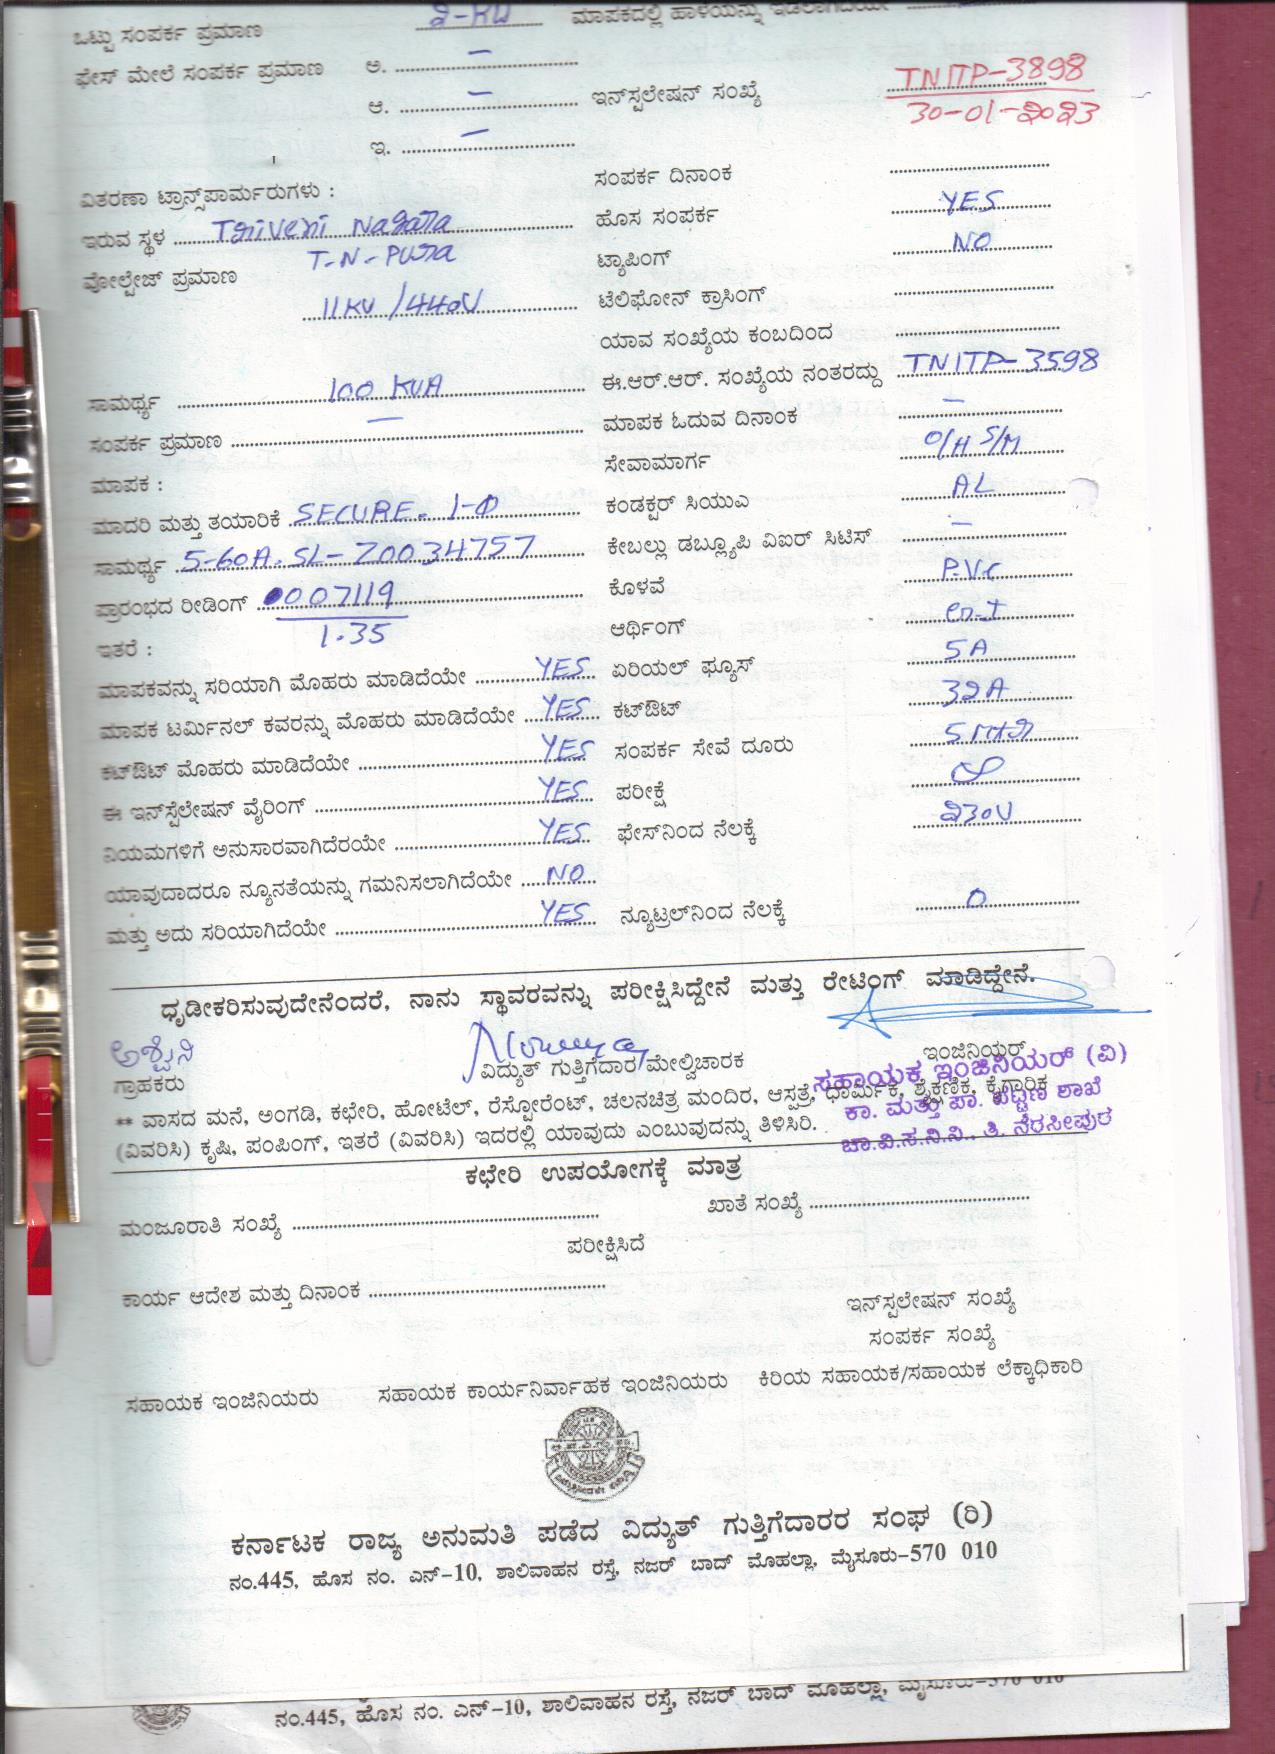 ಒಟ್ಟು ಸಂಪರ್ಕ ಪ್ರಮಾಣ 2-KW ಮಾಪಕದಲ್ಲಿ ಹಾಳೆಯನ್ನು ಇಡಲಾಗಿದೆಯೇ
ಫೇಸ್ ಮೇಲೆ ಸಂಪರ್ಕ ಪ್ರಮಾಣ ಅ. –
ಆ. – ಇನ್‌ಸ್ಪಲೇಷನ್ ಸಂಖ್ಯೆ TNITP-3898
30-01-2023
ಇ. –
ಸಂಪರ್ಕ ದಿನಾಂಕ
ವಿತರಣಾ ಟ್ರಾನ್ಸ್‌ಪಾರ್ಮರುಗಳು :
ಇರುವ ಸ್ಥಳ Triveni Nagara ಹೊಸ ಸಂಪರ್ಕ YES
T-N-Pura ಟ್ಯಾಪಿಂಗ್ NO
ವೋಲ್ಟೇಜ್ ಪ್ರಮಾಣ 11KV/440V ಟೆಲಿಫೋನ್ ಕ್ರಾಸಿಂಗ್
ಯಾವ ಸಂಖ್ಯೆಯ ಕಂಬದಿಂದ
ಸಾಮರ್ಥ್ಯ 100 KVA ಈ.ಆರ್.ಆರ್. ಸಂಖ್ಯೆಯ ನಂತರದ್ದು TNITP-3598
ಸಂಪರ್ಕ ಪ್ರಮಾಣ – ಮಾಪಕ ಓದುವ ದಿನಾಂಕ –
ಮಾಪಕ : ಸೇವಾಮಾರ್ಗ O/H S/M
ಮಾದರಿ ಮತ್ತು ತಯಾರಿಕೆ SECURE. 1-Φ ಕಂಡಕ್ಟರ್ ಸಿಯುಎ AL
ಸಾಮರ್ಥ್ಯ 5-60A. SL- Z0034757 ಕೇಬಲ್ಲು ಡಬ್ಲ್ಯೂಪಿ ವಿಐರ್ ಸಿಟಿಸ್ –
ಪ್ರಾರಂಭದ ರೀಡಿಂಗ್ 0007119 ಕೊಳವೆ P.V.C
1.35
ಇತರೆ : ಆರ್ಥಿಂಗ್
ಮಾಪಕವನ್ನು ಸರಿಯಾಗಿ ಮೊಹರು ಮಾಡಿದೆಯೇ YES ಏರಿಯಲ್ ಫ್ಯೂಸ್ 5A
ಮಾಪಕ ಟರ್ಮಿನಲ್ ಕವರನ್ನು ಮೊಹರು ಮಾಡಿದೆಯೇ YES ಕಟ್‌ಔಟ್ 32A
ಕಟ್‌ಔಟ್ ಮೊಹರು ಮಾಡಿದೆಯೇ YES ಸಂಪರ್ಕ ಸೇವೆ ದೂರು
ಈ ಇನ್‌ಸ್ಪೆಲೇಷನ್ ವೈರಿಂಗ್ YES ಪರೀಕ್ಷೆ
ನಿಯಮಗಳಿಗೆ ಅನುಸಾರವಾಗಿದೆರಯೇ YES ಫೇಸ್‌ನಿಂದ ನೆಲಕ್ಕೆ 230V
ಯಾವುದಾದರೂ ನ್ಯೂನತೆಯನ್ನು ಗಮನಿಸಲಾಗಿದೆಯೇ NO
ಮತ್ತು ಅದು ಸರಿಯಾಗಿದೆಯೇ YES ನ್ಯೂಟ್ರಲ್‌ನಿಂದ ನೆಲಕ್ಕೆ 0
ಧೃಡೀಕರಿಸುವುದೇನೆಂದರೆ, ನಾನು ಸ್ಥಾವರವನ್ನು ಪರೀಕ್ಷಿಸಿದ್ದೇನೆ ಮತ್ತು ರೇಟಿಂಗ್ ಮಾಡಿದ್ದೇನೆ.
ಅಶ್ವಿನಿ
ಗ್ರಾಹಕರು ವಿದ್ಯುತ್ ಗುತ್ತಿಗೆದಾರ/ಮೇಲ್ವಿಚಾರಕ ಇಂಜಿನಿಯರ್
ಸಹಾಯಕ ಇಂಜಿನಿಯರ್ (ವಿ)
ಕಾ. ಮತ್ತು ಪಾ. ಪಟ್ಟಣ ಶಾಖೆ
ಚಾ.ವಿ.ಸ.ನಿ.ನಿ., ತಿ. ನರಸೀಪುರ
** ವಾಸದ ಮನೆ, ಅಂಗಡಿ, ಕಛೇರಿ, ಹೋಟೆಲ್, ರೆಸ್ಟೋರೆಂಟ್, ಚಲನಚಿತ್ರ ಮಂದಿರ, ಆಸ್ಪತ್ರೆ, ಧಾರ್ಮಿಕ, ಶೈಕ್ಷಣಿಕ, ಕೈಗಾರಿಕ
(ವಿವರಿಸಿ) ಕೃಷಿ, ಪಂಪಿಂಗ್, ಇತರೆ (ವಿವರಿಸಿ) ಇದರಲ್ಲಿ ಯಾವುದು ಎಂಬುವುದನ್ನು ತಿಳಿಸಿರಿ.
ಕಛೇರಿ ಉಪಯೋಗಕ್ಕೆ ಮಾತ್ರ
ಮಂಜೂರಾತಿ ಸಂಖ್ಯೆ ಖಾತೆ ಸಂಖ್ಯೆ
ಪರೀಕ್ಷಿಸಿದೆ
ಕಾರ್ಯ ಆದೇಶ ಮತ್ತು ದಿನಾಂಕ
ಇನ್‌ಸ್ಪಲೇಷನ್ ಸಂಖ್ಯೆ
ಸಂಪರ್ಕ ಸಂಖ್ಯೆ
ಸಹಾಯಕ ಇಂಜಿನಿಯರು ಸಹಾಯಕ ಕಾರ್ಯನಿರ್ವಾಹಕ ಇಂಜಿನಿಯರು ಕಿರಿಯ ಸಹಾಯಕ/ಸಹಾಯಕ ಲೆಕ್ಕಾಧಿಕಾರಿ
ಕರ್ನಾಟಕ ರಾಜ್ಯ ಅನುಮತಿ ಪಡೆದ ವಿದ್ಯುತ್ ಗುತ್ತಿಗೆದಾರರ ಸಂಘ (ರಿ)
ನಂ.445, ಹೊಸ ನಂ. ಎನ್-10, ಶಾಲಿವಾಹನ ರಸ್ತೆ, ನಜರ್ ಬಾದ್ ಮೊಹಲ್ಲಾ, ಮೈಸೂರು-570 010
ನಂ.445, ಹೊಸ ನಂ. ಎನ್-10, ಶಾಲಿವಾಹನ ರಸ್ತೆ, ನಜರ್ ಬಾದ್ ಮೊಹಲ್ಲಾ, ಮೈಸೂರು-570 010